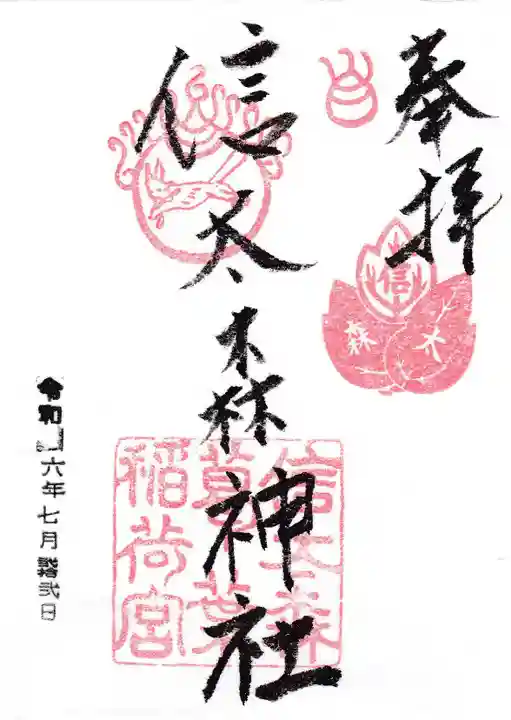 奉拝
信太森神社
信
太
森
信太森
葛葉
稲荷宮
令和六年七月 弐日